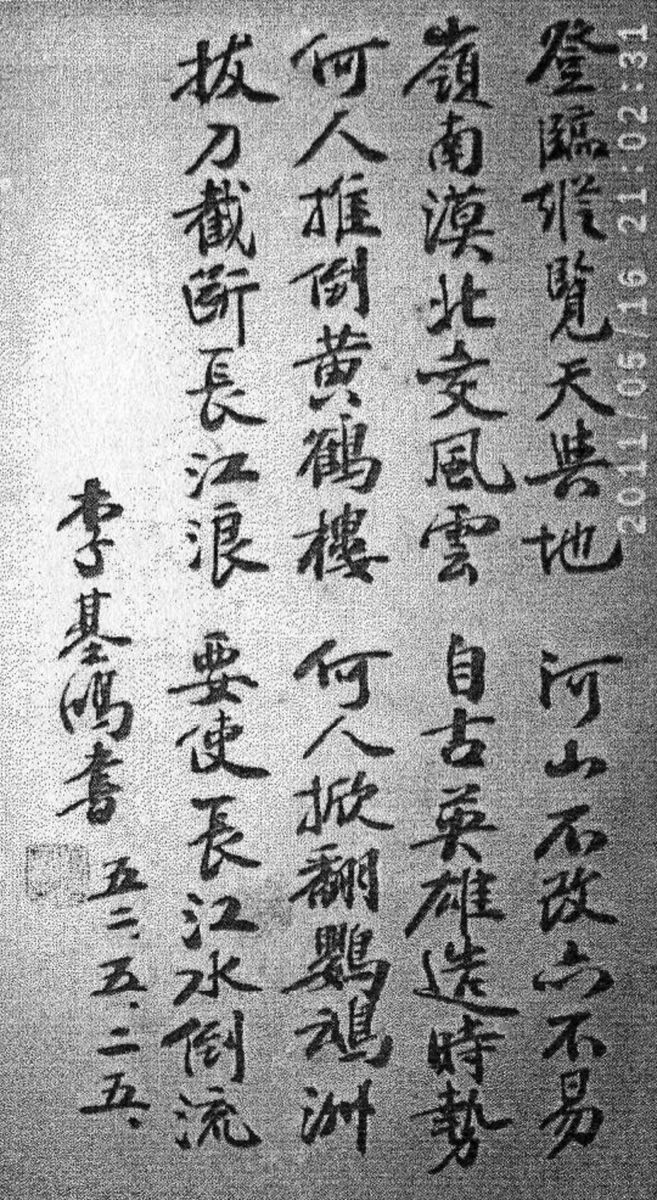 登臨縱覽天與地 河山不改亦不易
嶺南漠北變風雲 自古英雄造時勢
何人推倒黄鶴樓 何人掀翻鸚鵡洲
拔刀截斷長江浪 要使長江水倒流
李基鴻書
五二、五、二五、
2011/05/16 21:02:31